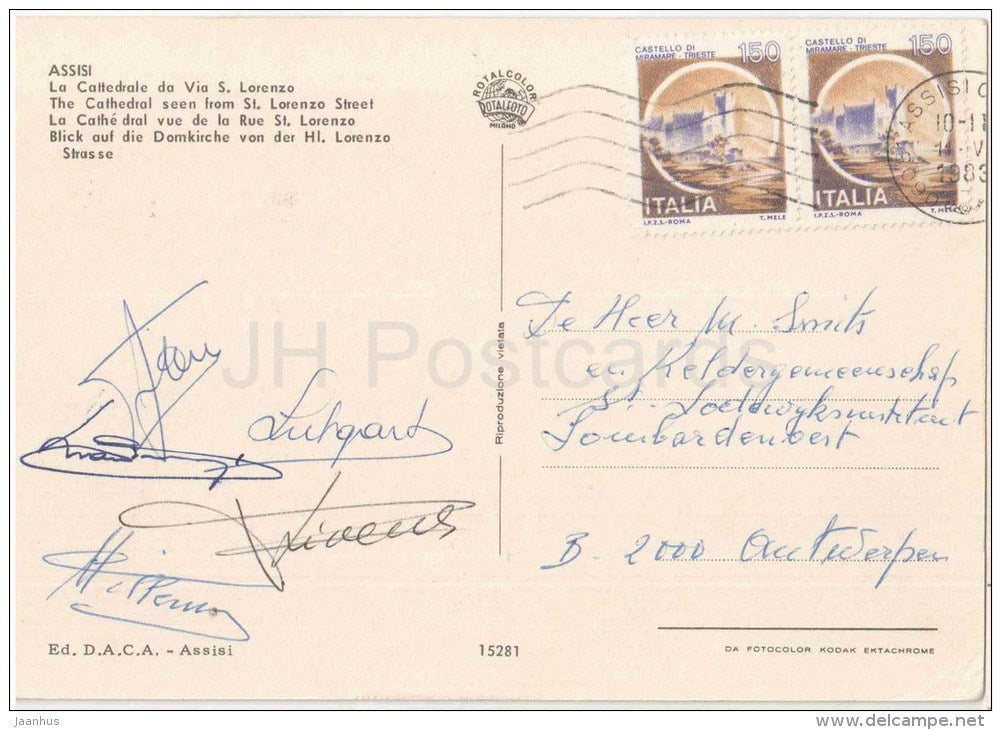 ASSISI
La Cattedrale da Via S. Lorenzo
The Cathedral seen from St. Lorenzo Street
La Cathédral vue de la Rue St. Lorenzo
Blick auf die Domkirche von der Hl. Lorenzo
Strasse
ROTALCOLOR
ROTALFOTO
MILANO
CASTELLO DI
MIRAMARE - TRIESTE
150
ITALIA
I.P.Z.S.-ROMA T. MELE
CASTELLO DI
MIRAMARE - TRIESTE
150
ITALIA
I.P.Z.S.-ROMA T. MELE
ASSISI
10-11
1983
JH Postcards
Riproduzione vietata
De Heer M. Smits
en Keldergemeenschap
St. Lodewijksinstituut
Lombardenvest
B. 2000 Antwerpen
Lutgart
Ed. D.A.C.A. - Assisi
15281
DA FOTOCOLOR KODAK EKTACHROME
Jaanhus
www.delcampe.net